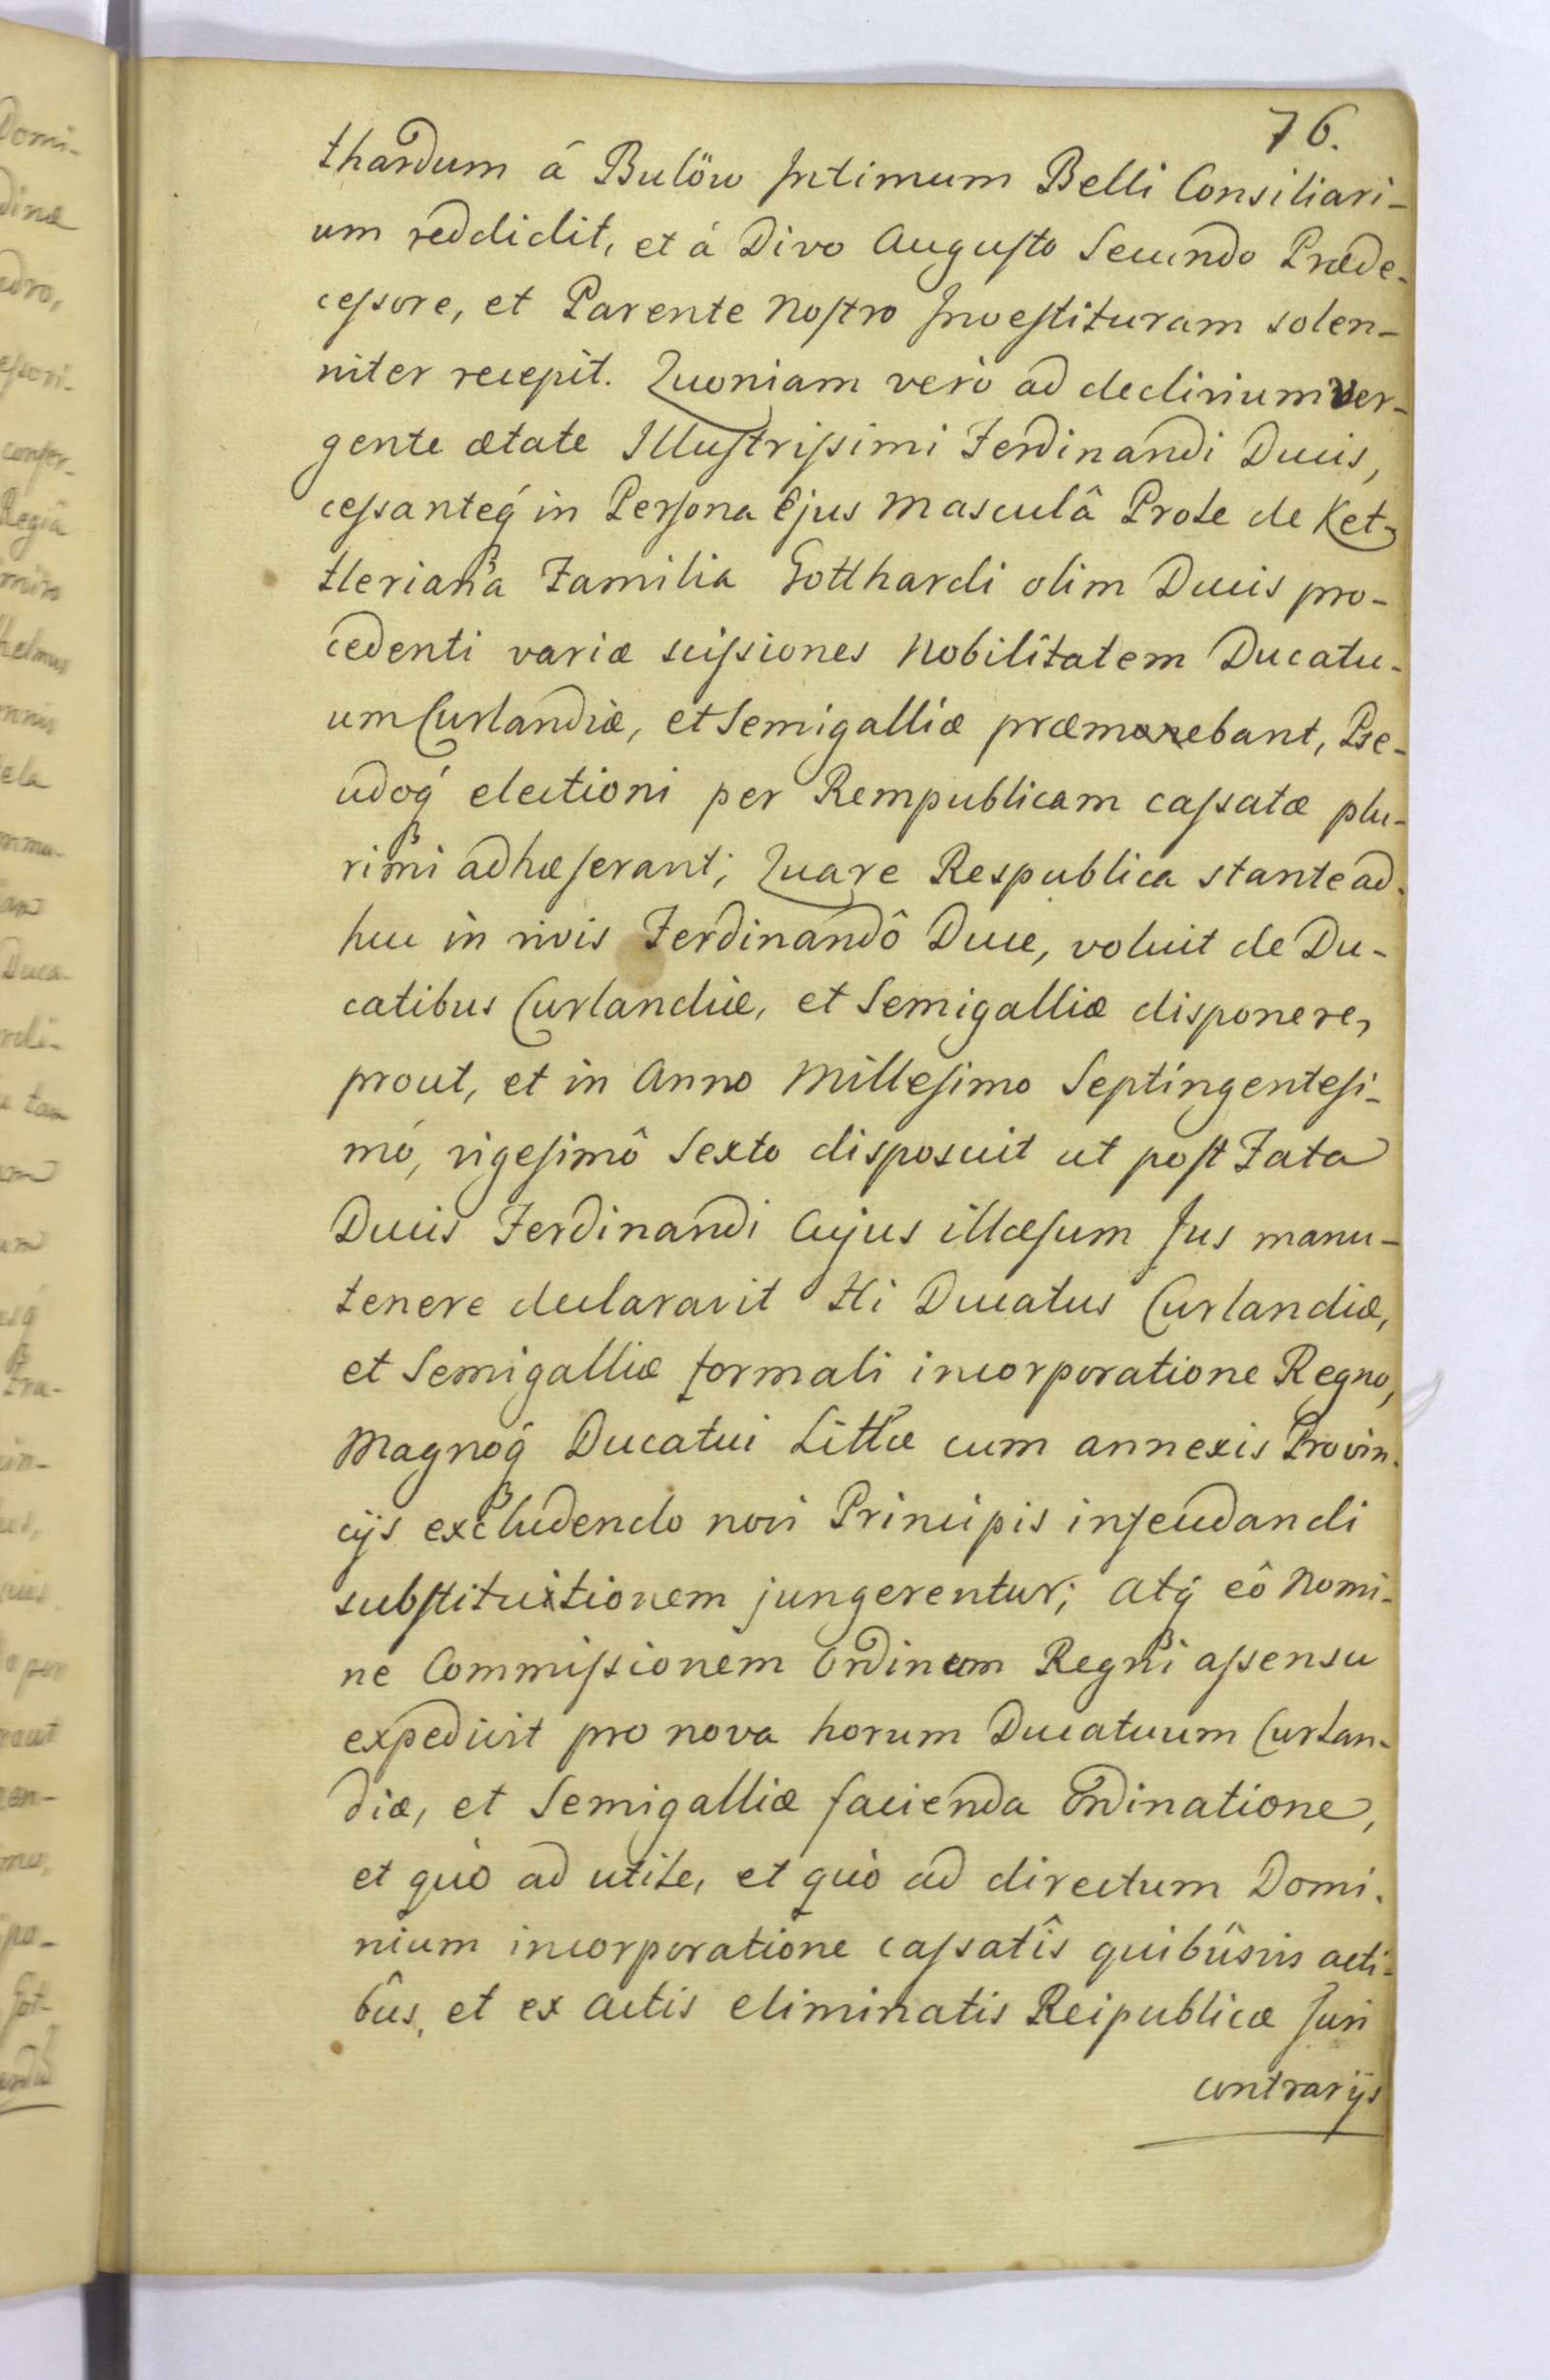 76.
thardum á Bulöw Intimum Belli Consiliari-
um reddidit, et á Divo Augusto Secundo Præde-
cessore, et Parente Nostro Investituram solen-
niter recepit. Quoniam veró ad declinium ver-
gente ætate Illustrissimi Ferdinandi Ducis,
cessanteq́ in Persona Ejus Masculâ Prole de Ket-
tleriana Familia Gotthardi olim Ducis pro-
cedenti variæ scissiones Nobilitatem Ducatu-
um Curlandiæ, et Semigalliæ præmonebant, Pse-
udoq́ electioni per Rempublicam cassatæ plu-
rimi adhæserant; Quare Respublica stante ad-
huc in vivis Ferdinandô Duce, voluit de Du-
catibus Curlandiæ, et Semigalliæ disponere,
prout, et in Anno Millesimo Septingentesi-
mó, vigesimô Sexto disposuit ut post Fata
Ducis Ferdinandi Cujus illæsum Jus manu-
tenere declaravit Hi Ducatus Curlandiæ,
et Semigalliæ formali incorporatione Regno,
Magnoq́ Ducatui Littæ cum annexis Provin-
cijs excludendo novi Principis infeudandi
substitutionem jungerentur; Atq́ eô Nomi-
ne Commissionem Ordinum Regni assensu
expedivit pro nova horum Ducatuum Curlan-
diæ, et Semigalliæ facienda Ordinatione,
et quò ad utile, et quò ad directum Domi-
nium incorporatione cassatîs quibûsvis acti-
bûs, et ex Actis eliminatis Reipublicæ Juri
contrarijs
Domi-
conser-
Regiâ
Duca-